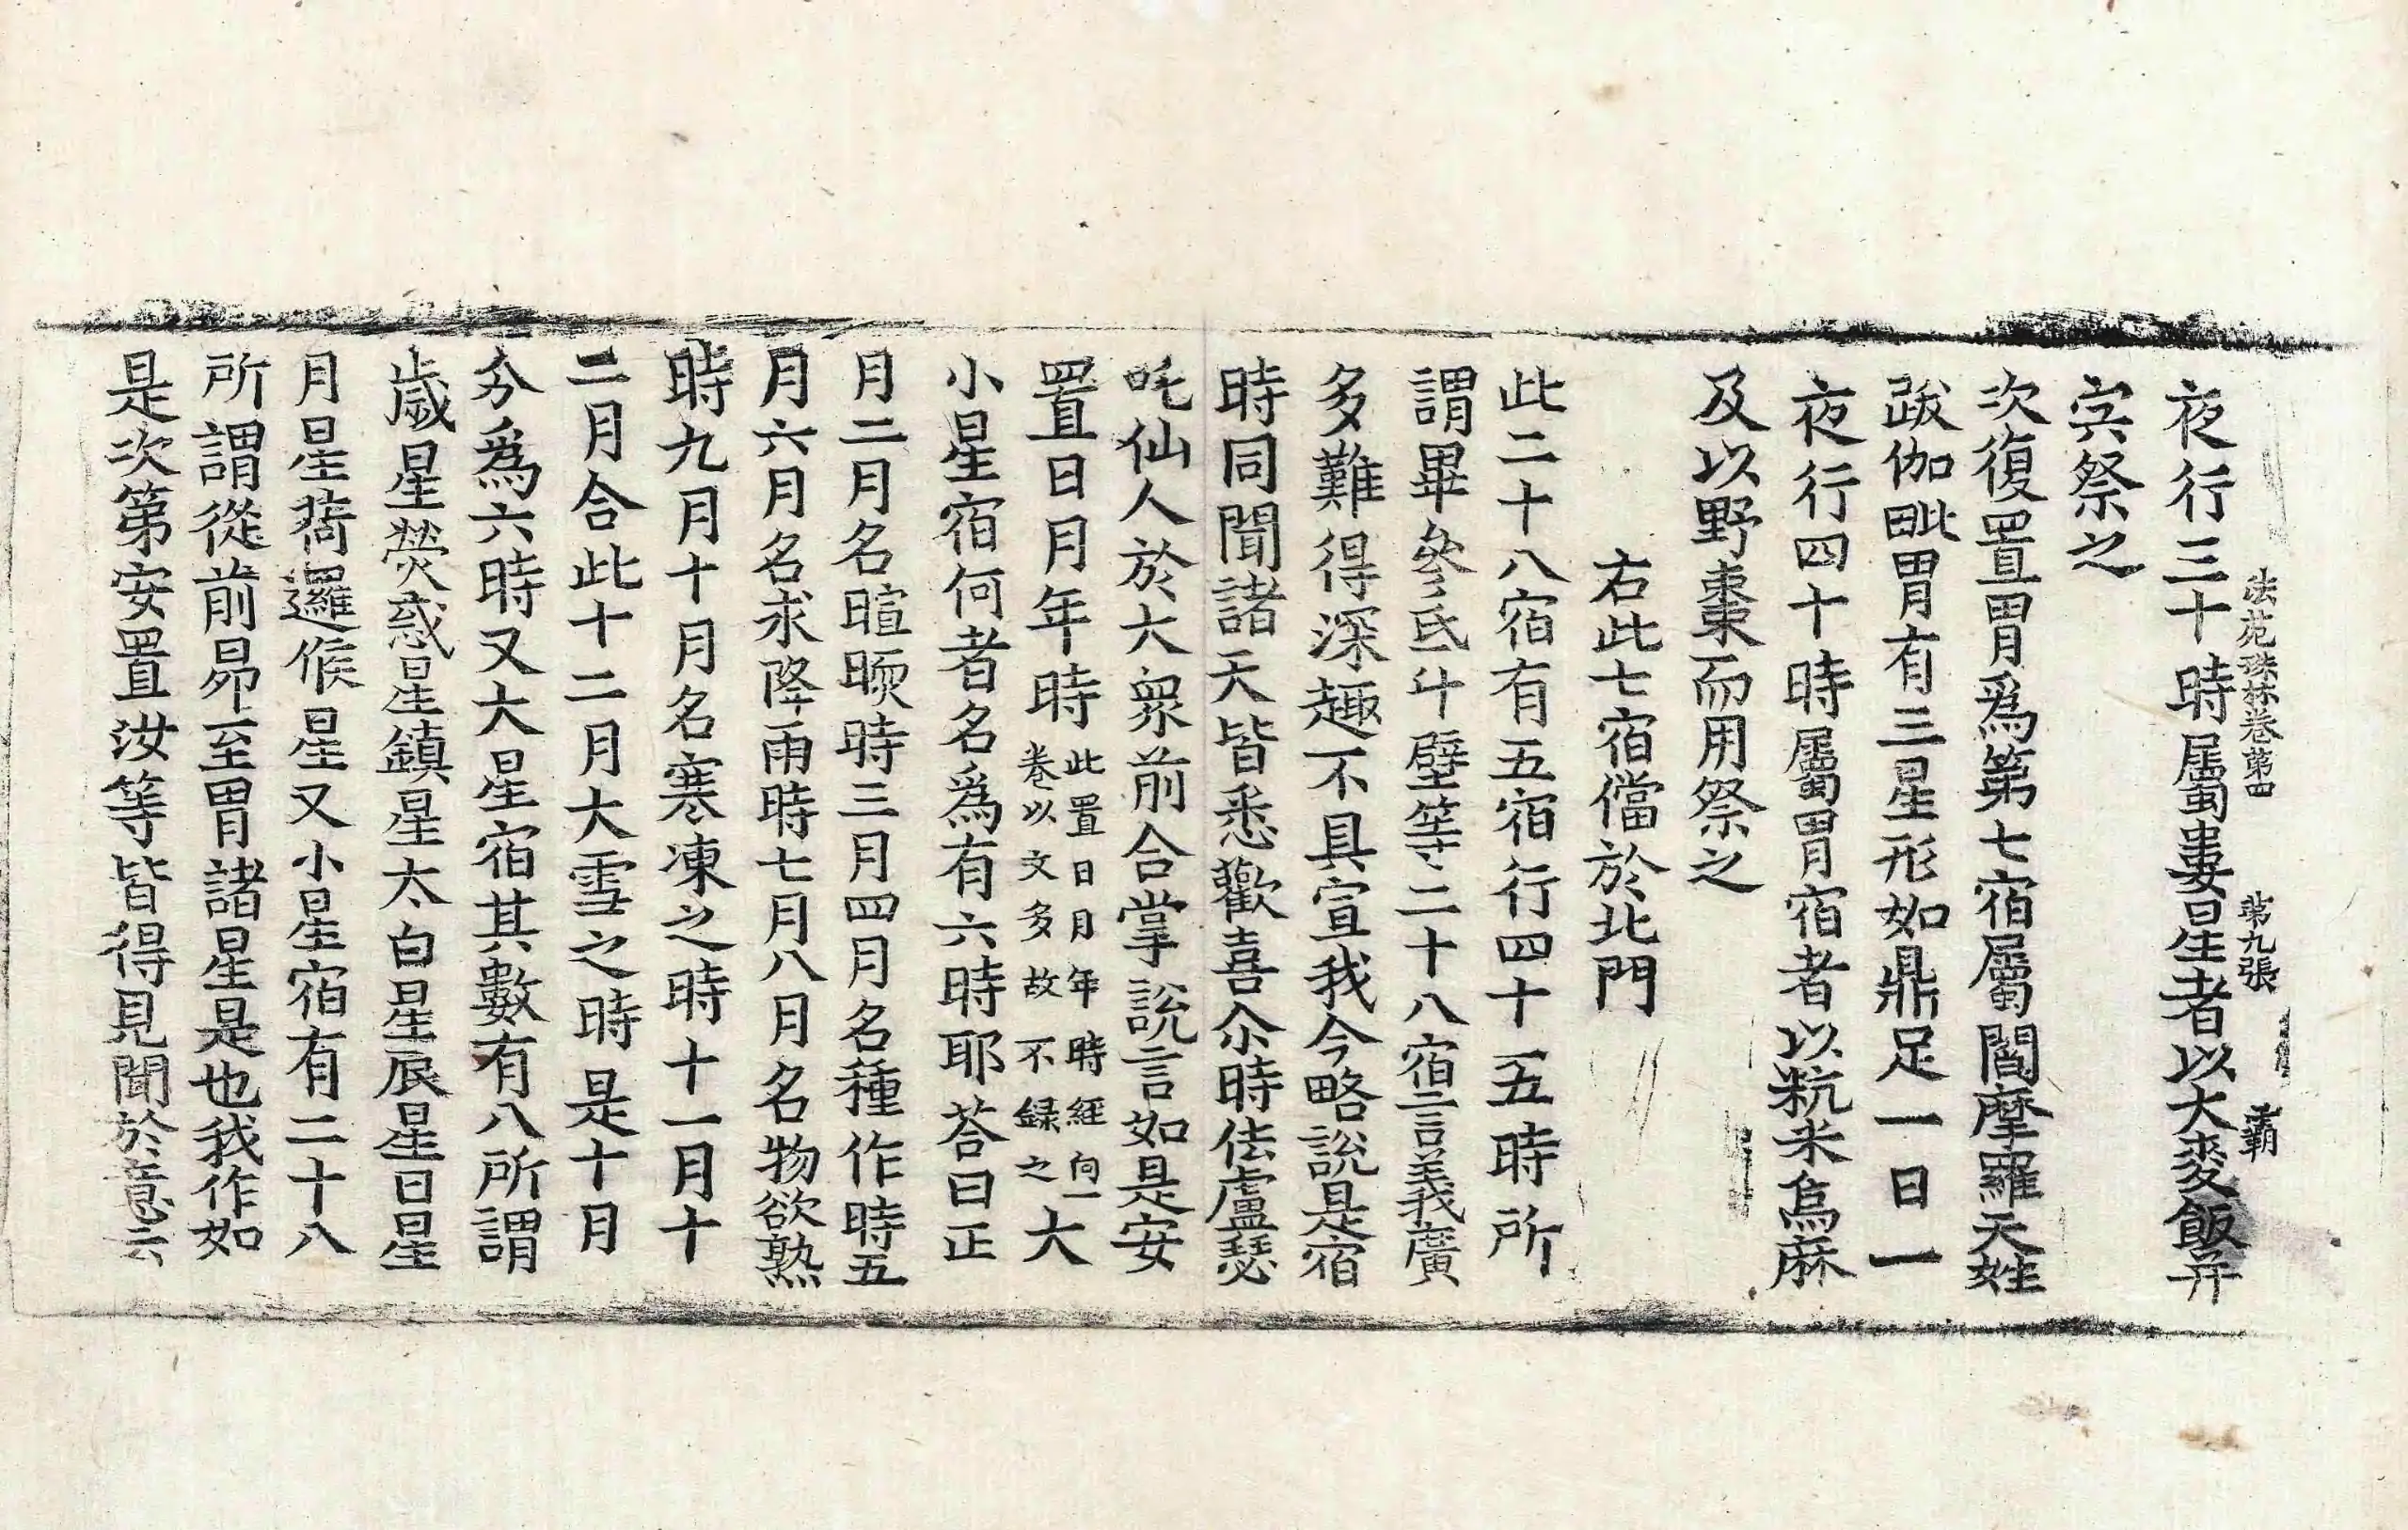 法苑珠林卷第四 第九張 霸
夜行三十時屬婁星者以大麥飯幷
宍祭之
次復置胃爲第七宿屬閻摩羅天姓
跋伽毗胃有三星形如鼎足一日一
夜行四十時屬胃宿者以粇米烏麻
及以野棗而用祭之
右此七宿儅於北門
此二十八宿有五宿行四十五時所
謂畢參氐斗壁等二十八宿言義廣
多難得深趣不具宣我今略說是宿
時同聞諸天皆悉歡喜尒時佉盧瑟
吒仙人於大衆前合掌說言如是安
置日月年時此置日月年時經向一卷以文多故不録之大
小星宿何者名爲有六時耶荅曰正
月二月名暄暖時三月四月名種作時五
月六月名求降雨時七月八月名物欲熟
時九月十月名寒凍之時十一月十
二月合此十二月大雪之時是十月
分爲六時又大星宿其數有八所謂
歲星熒惑星鎮星太白星辰星日星
月星荷邏侯星又小星宿有二十八
所謂從前昴至胃諸星是也我作如
是次第安置汝等皆得見聞於意云